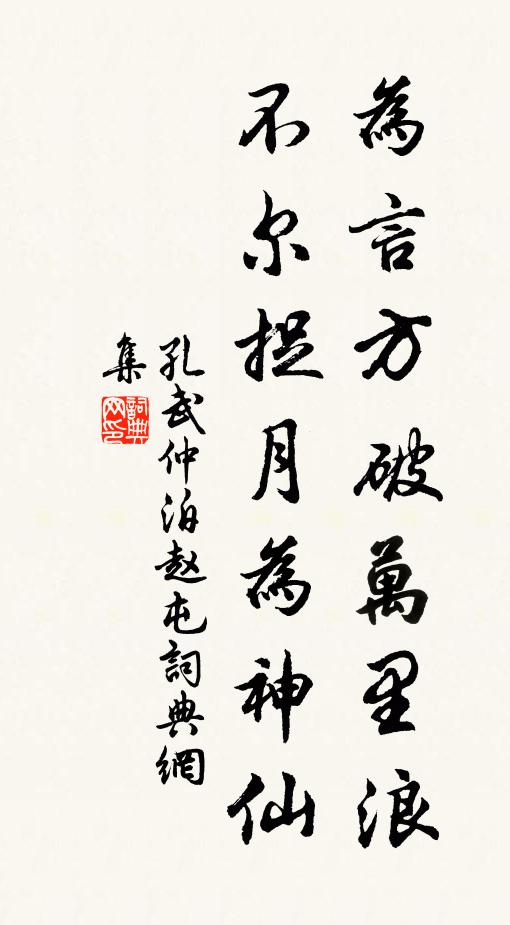 為言方破萬里浪
不尔捉月為神仙
孔武仲泊赵屯詞典網
集
詞典
网印